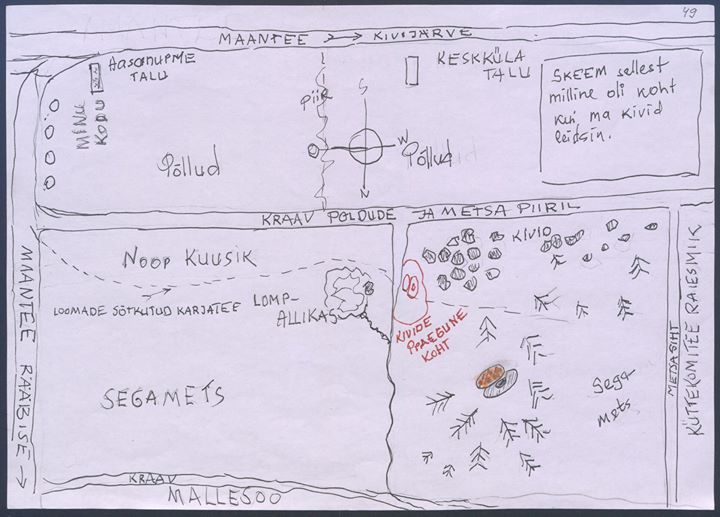 49
MAANTEE → KIVIJÄRVE
HASONURME
TALU
MINU
KODU
PIIR
KESKKÜLA
TALU
SKEEM sellest
milline oli koht
kui ma kivid
leidsin.
S
W
N
Põllud
Põllud
KRAAV PÕLDUDE JA METSA PIIRIL
NOOR KUUSIK
KIVID
LOOMADE SÕTKUTUD KARJATEE
LOMP-
ALLIKAS
KIVIDE
PRAEGUNE
KOHT
SEGAMETS
Sega
mets
MAANTEE RÄÄBISE →
METSASIHT
KÜTTEKOMITEE RAIESMIK
KRAAV
MALLESOO